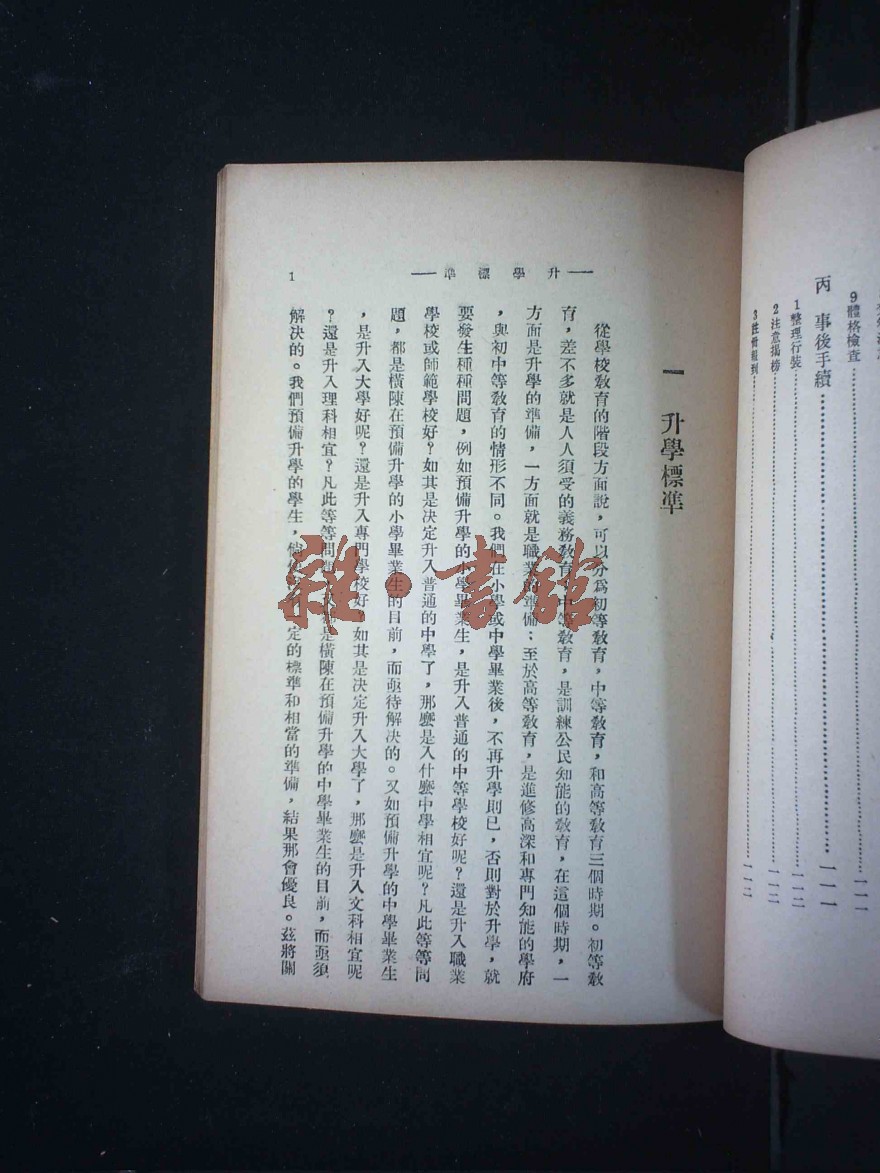 9 體格檢查⋯⋯一一一
丙 事後手續⋯⋯一一一
1 整理行裝⋯⋯一一二
2 注意揭榜⋯⋯一一二
3 註冊報到⋯⋯一一二
—升學標準—
1
一 升學標準
從學校敎育的階段方面說，可以分爲初等敎育，中等敎育，和高等敎育三個時期。初等敎
育，差不多就是人人須受的義務敎育，中等敎育，是訓練公民知能的敎育，在這個時期，一
方面是升學的準備，一方面就是職業的準備；至於高等敎育，是進修高深和專門知能的學府
，與初中等敎育的情形不同。我們在小學或中學畢業後，不再升學則已，否則對於升學，就
要發生種種問題，例如預備升學的小學畢業生，是升入普通的中等學校好呢？還是升入職業
學校或師範學校好？如其是決定升入普通的中學了，那麽是入什麽中學相宜呢？凡此等等問
題，都是橫陳在預備升學的小學畢業生的目前，而亟待解決的。又如預備升學的中學畢業生
，是升入大學好呢？還是升入專門學校好？如其是決定升入大學了，那麽是升入文科相宜呢
？還是升入理科相宜？凡此等等問題，是橫陳在預備升學的中學畢業生的目前，而亟須
解決的。我們預備升學的學生，定的標準和相當的準備，結果那會優良。茲將關
雜·書館